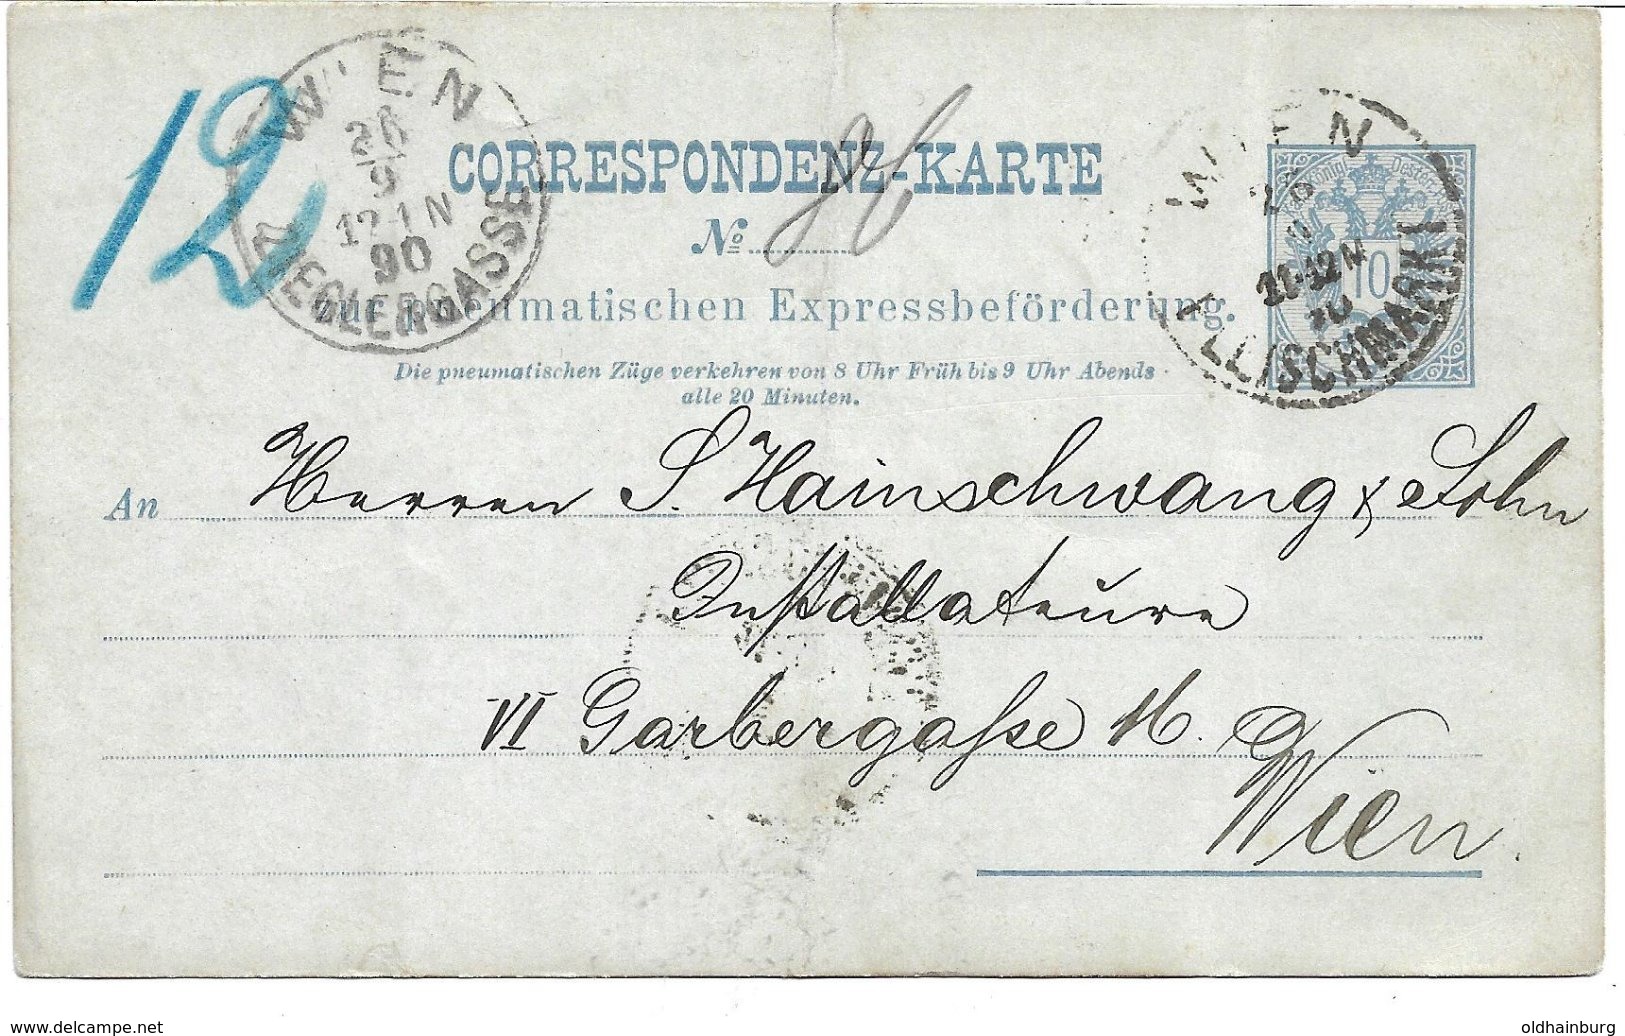 12
WIEN
26
9
12-1N
90
ZIEGLERGASSE
CORRESPONDENZ-KARTE
No 26
zur pneumatischen Expressbeförderung.
Die pneumatischen Züge verkehren von 8 Uhr Früh bis 9 Uhr Abends
alle 20 Minuten.
WIEN
26
11-12M
FLEISCHMARKT
10
An Herren S. Hainschwang & Sohn
Installateure
VI Garbergasse 16.
Wien.
www.delcampe.net
oldhainburg